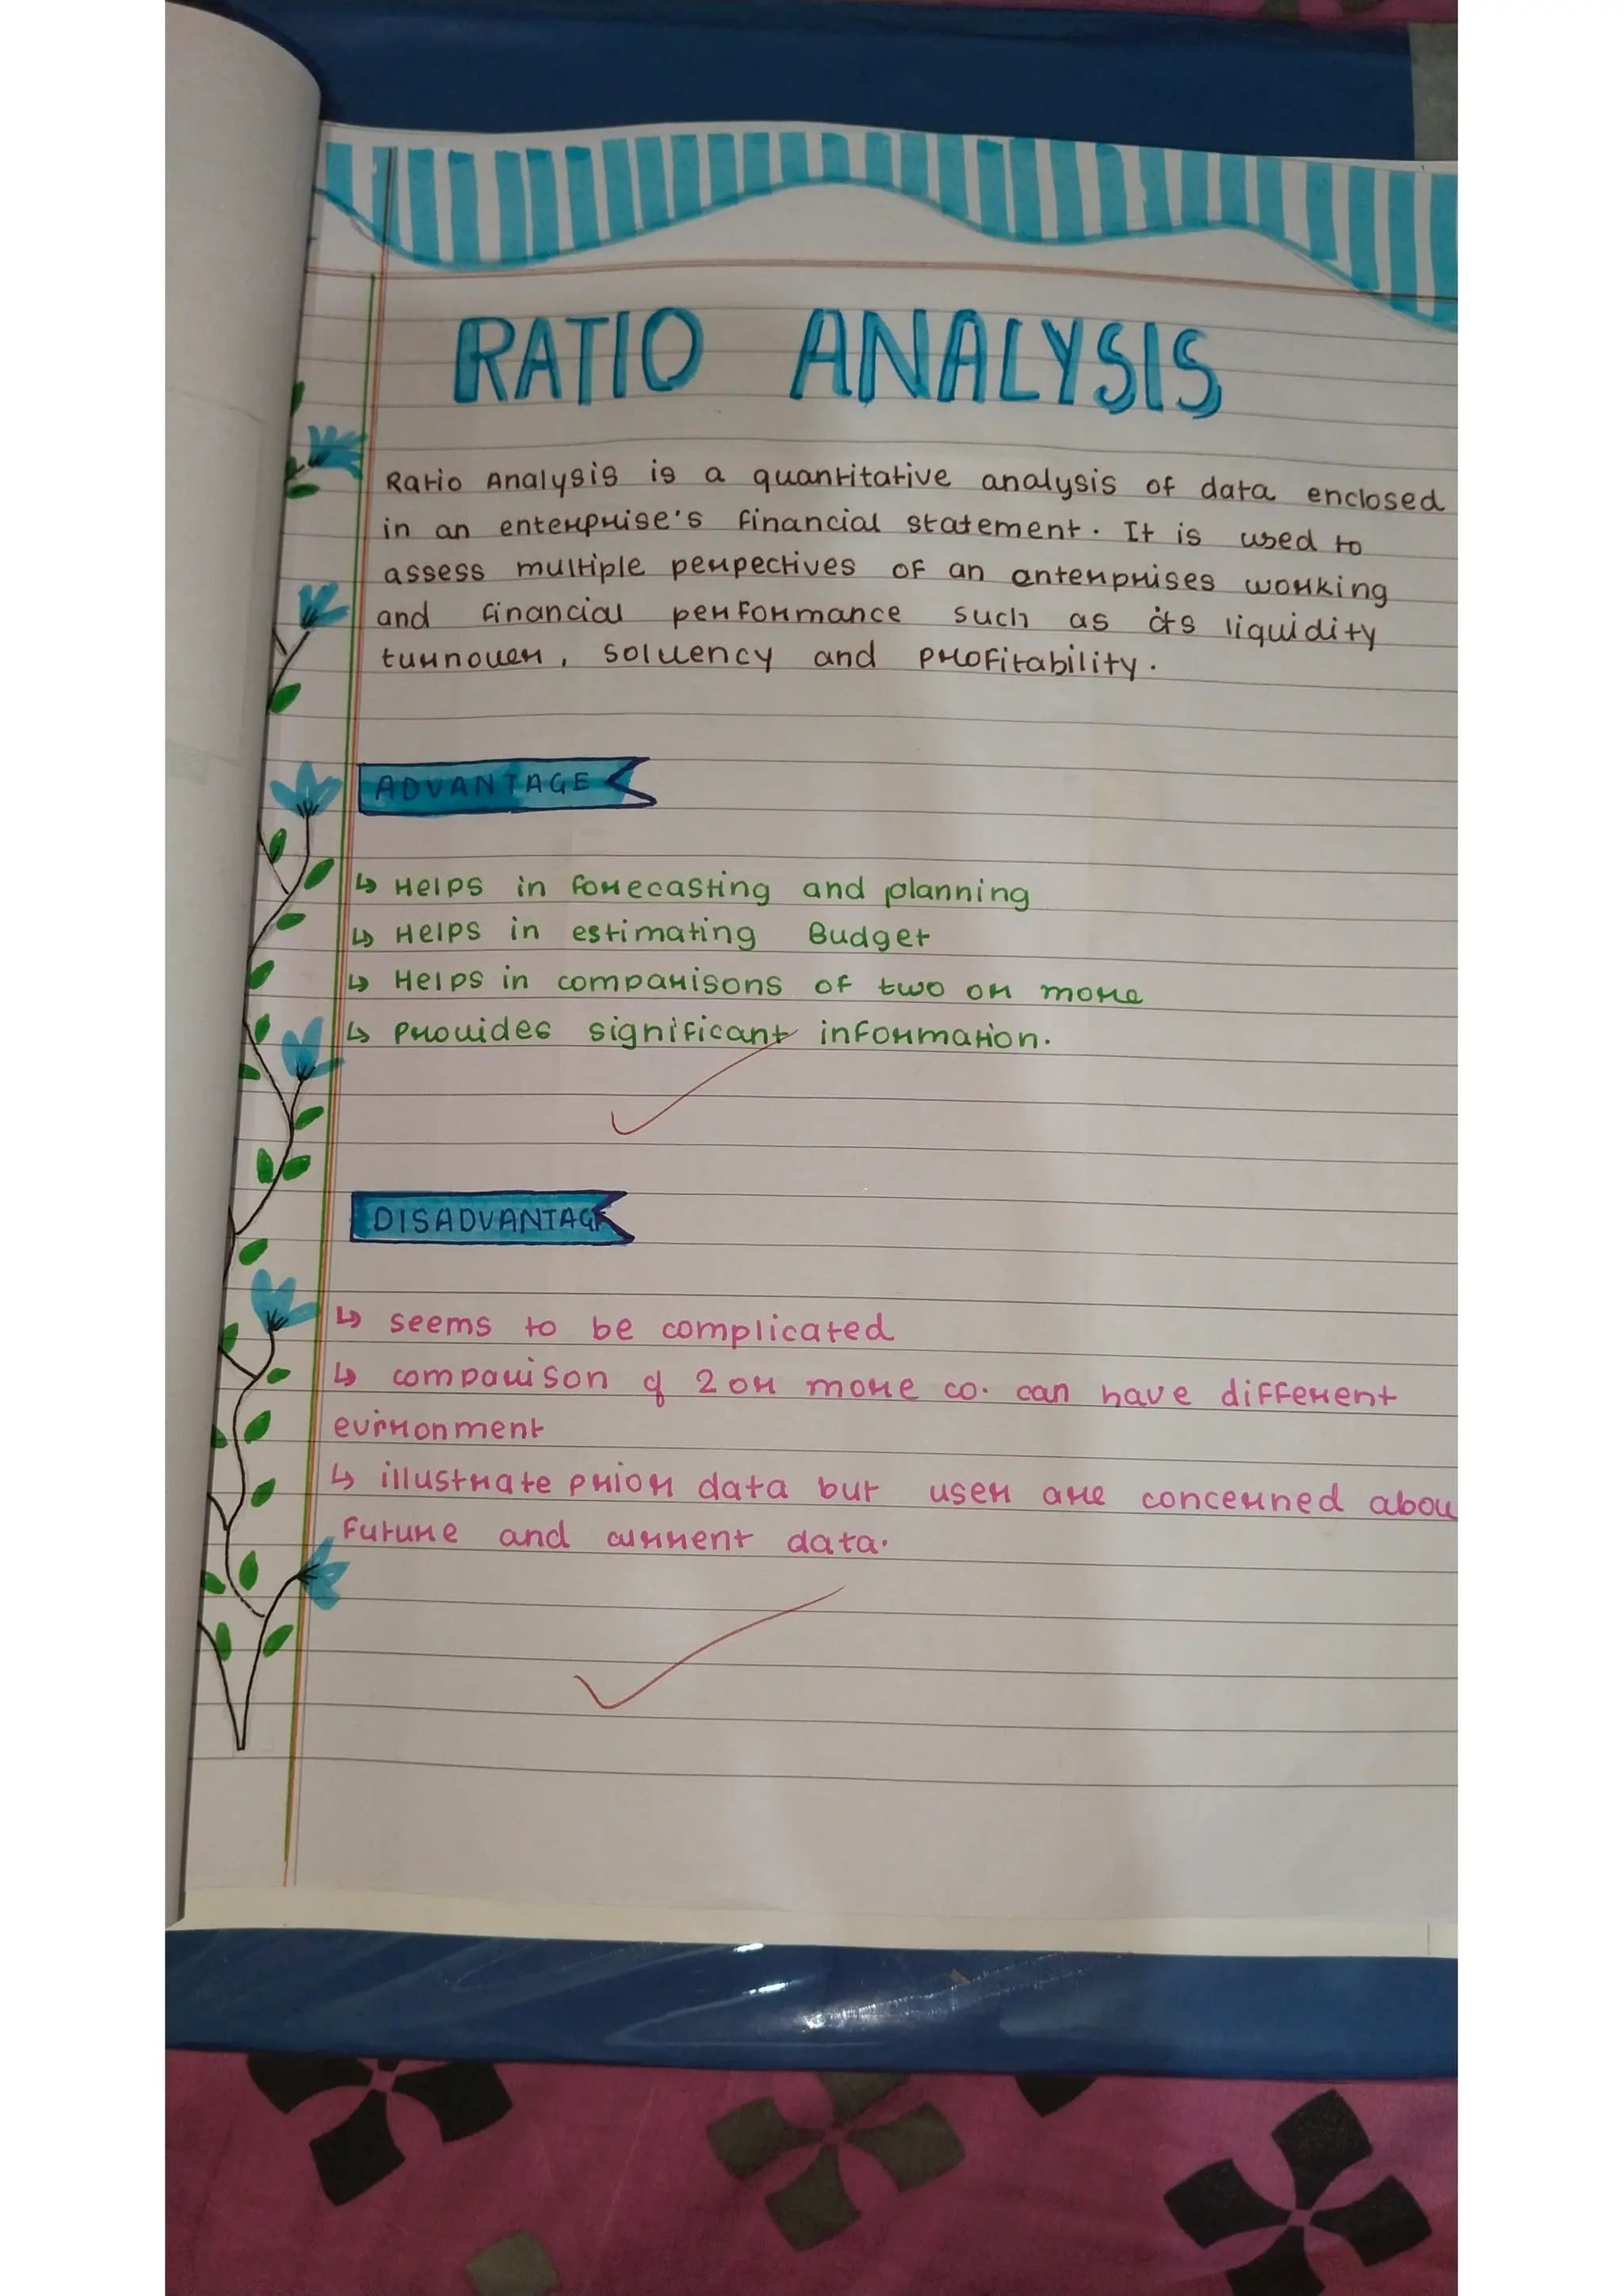 RATIO ANALYSIS
Ratio Analysis is a quantitative analysis of data enclosed
in an enterprise's financial statement. It is used to
assess multiple perpectives of an anterprises working
and financial performance such as its liquidity
turnover, solvency and profitability.
ADVANTAGE
↳ Helps in forecasting and planning
↳ Helps in estimating Budget
↳ Helps in comparisons of two or more
↳ provides significant information.
DISADVANTAGE
↳ seems to be complicated
↳ comparison of 2 or more co. can have different
evironment
↳ illustrate prior data but user are concerned abou
future and current data.